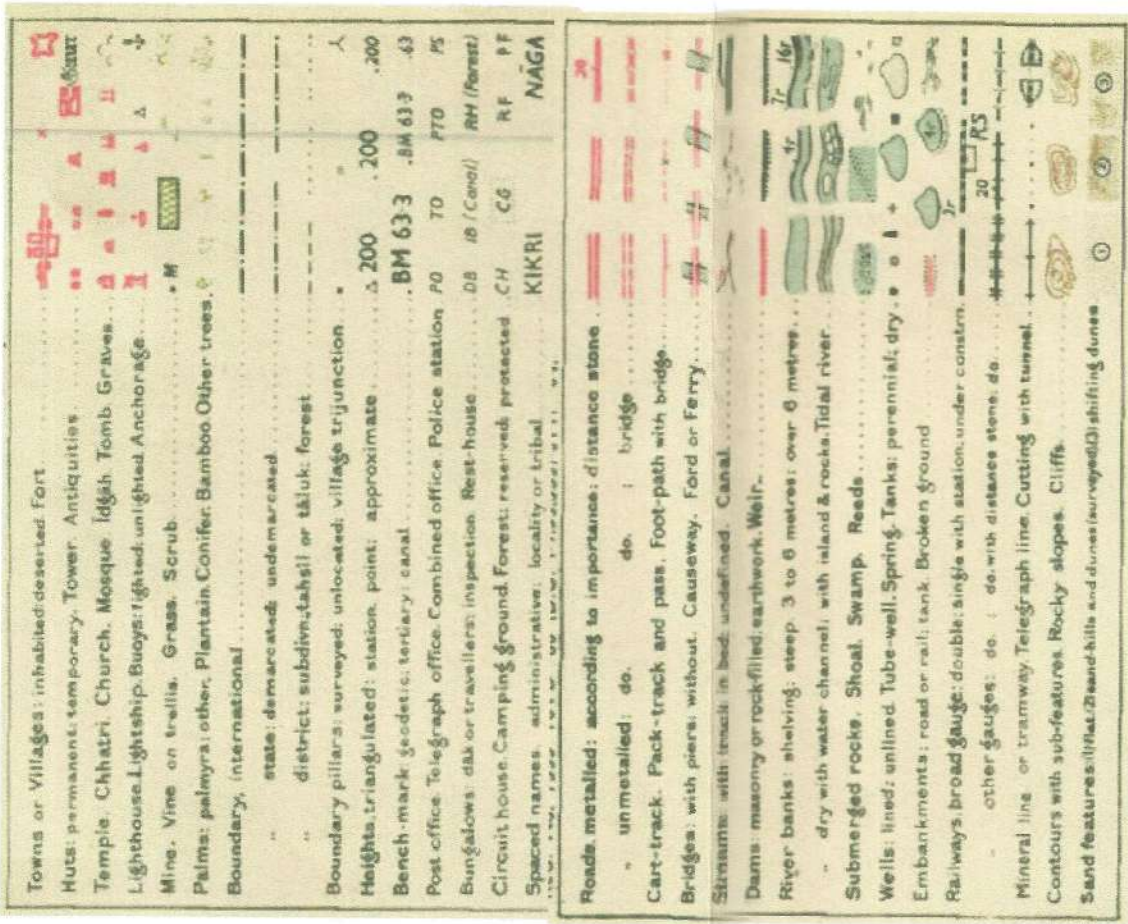 Towns or Villages: inhabited: deserted. Fort
Huts: permanent: temporary. Tower. Antiquities
Temple. Chhatri. Church. Mosque. Īdgāh. Tomb. Graves
Lighthouse. Lightship. Buoys: lighted: unlighted. Anchorage
Mine. Vine on trellis. Grass. Scrub . M
Palms: palmyra: other. Plantain. Conifer. Bamboo. Other trees.
Boundary, international
„ state: demarcated: undemarcated
„ district: subdivn, tahsil or tāluk: forest
Boundary pillars: surveyed: unlocated: village trijunction
Heights, triangulated: station: point: approximate △ 200 .200 .200
Bench-mark: geodetic: tertiary: canal .BM 63·3 .BM 63·3 .63
Post office. Telegraph office. Combined office. Police station PO TO PTO PS
Bungalows: dāk or travellers: inspection. Rest-house DB IB (Canal) RH (Forest)
Circuit house. Camping ground. Forest: reserved: protected CH CG RF PF
Spaced names: administrative: locality or tribal KIKRI NĀGA
Roads, metalled: according to importance: distance stone 20
„ unmetalled: do. do. : bridge
Cart-track. Pack-track and pass. Foot-path with bridge
Bridges: with piers: without. Causeway. Ford or Ferry
Streams: with track in bed: undefined. Canal
Dams: masonry or rock-filled: earthwork. Weir
River banks: shelving: steep 3 to 6 metres: over 6 metres 4r 7r 16r
„ dry with water channel: with island & rocks. Tidal river
Submerged rocks. Shoal. Swamp. Reeds
Wells: lined: unlined. Tube-well. Spring. Tanks: perennial: dry
Embankments: road or rail: tank. Broken ground 3r 4r
Railways, broad gauge: double: single with station: under constrn. RS
„ other gauges: do. : do. with distance stone: do. 20
Mineral line or tramway. Telegraph line. Cutting with tunnel
Contours with sub-features. Rocky slopes. Cliffs
Sand features: (1) flat: (2) sand-hills and dunes (surveyed): (3) shifting dunes ① ② ③